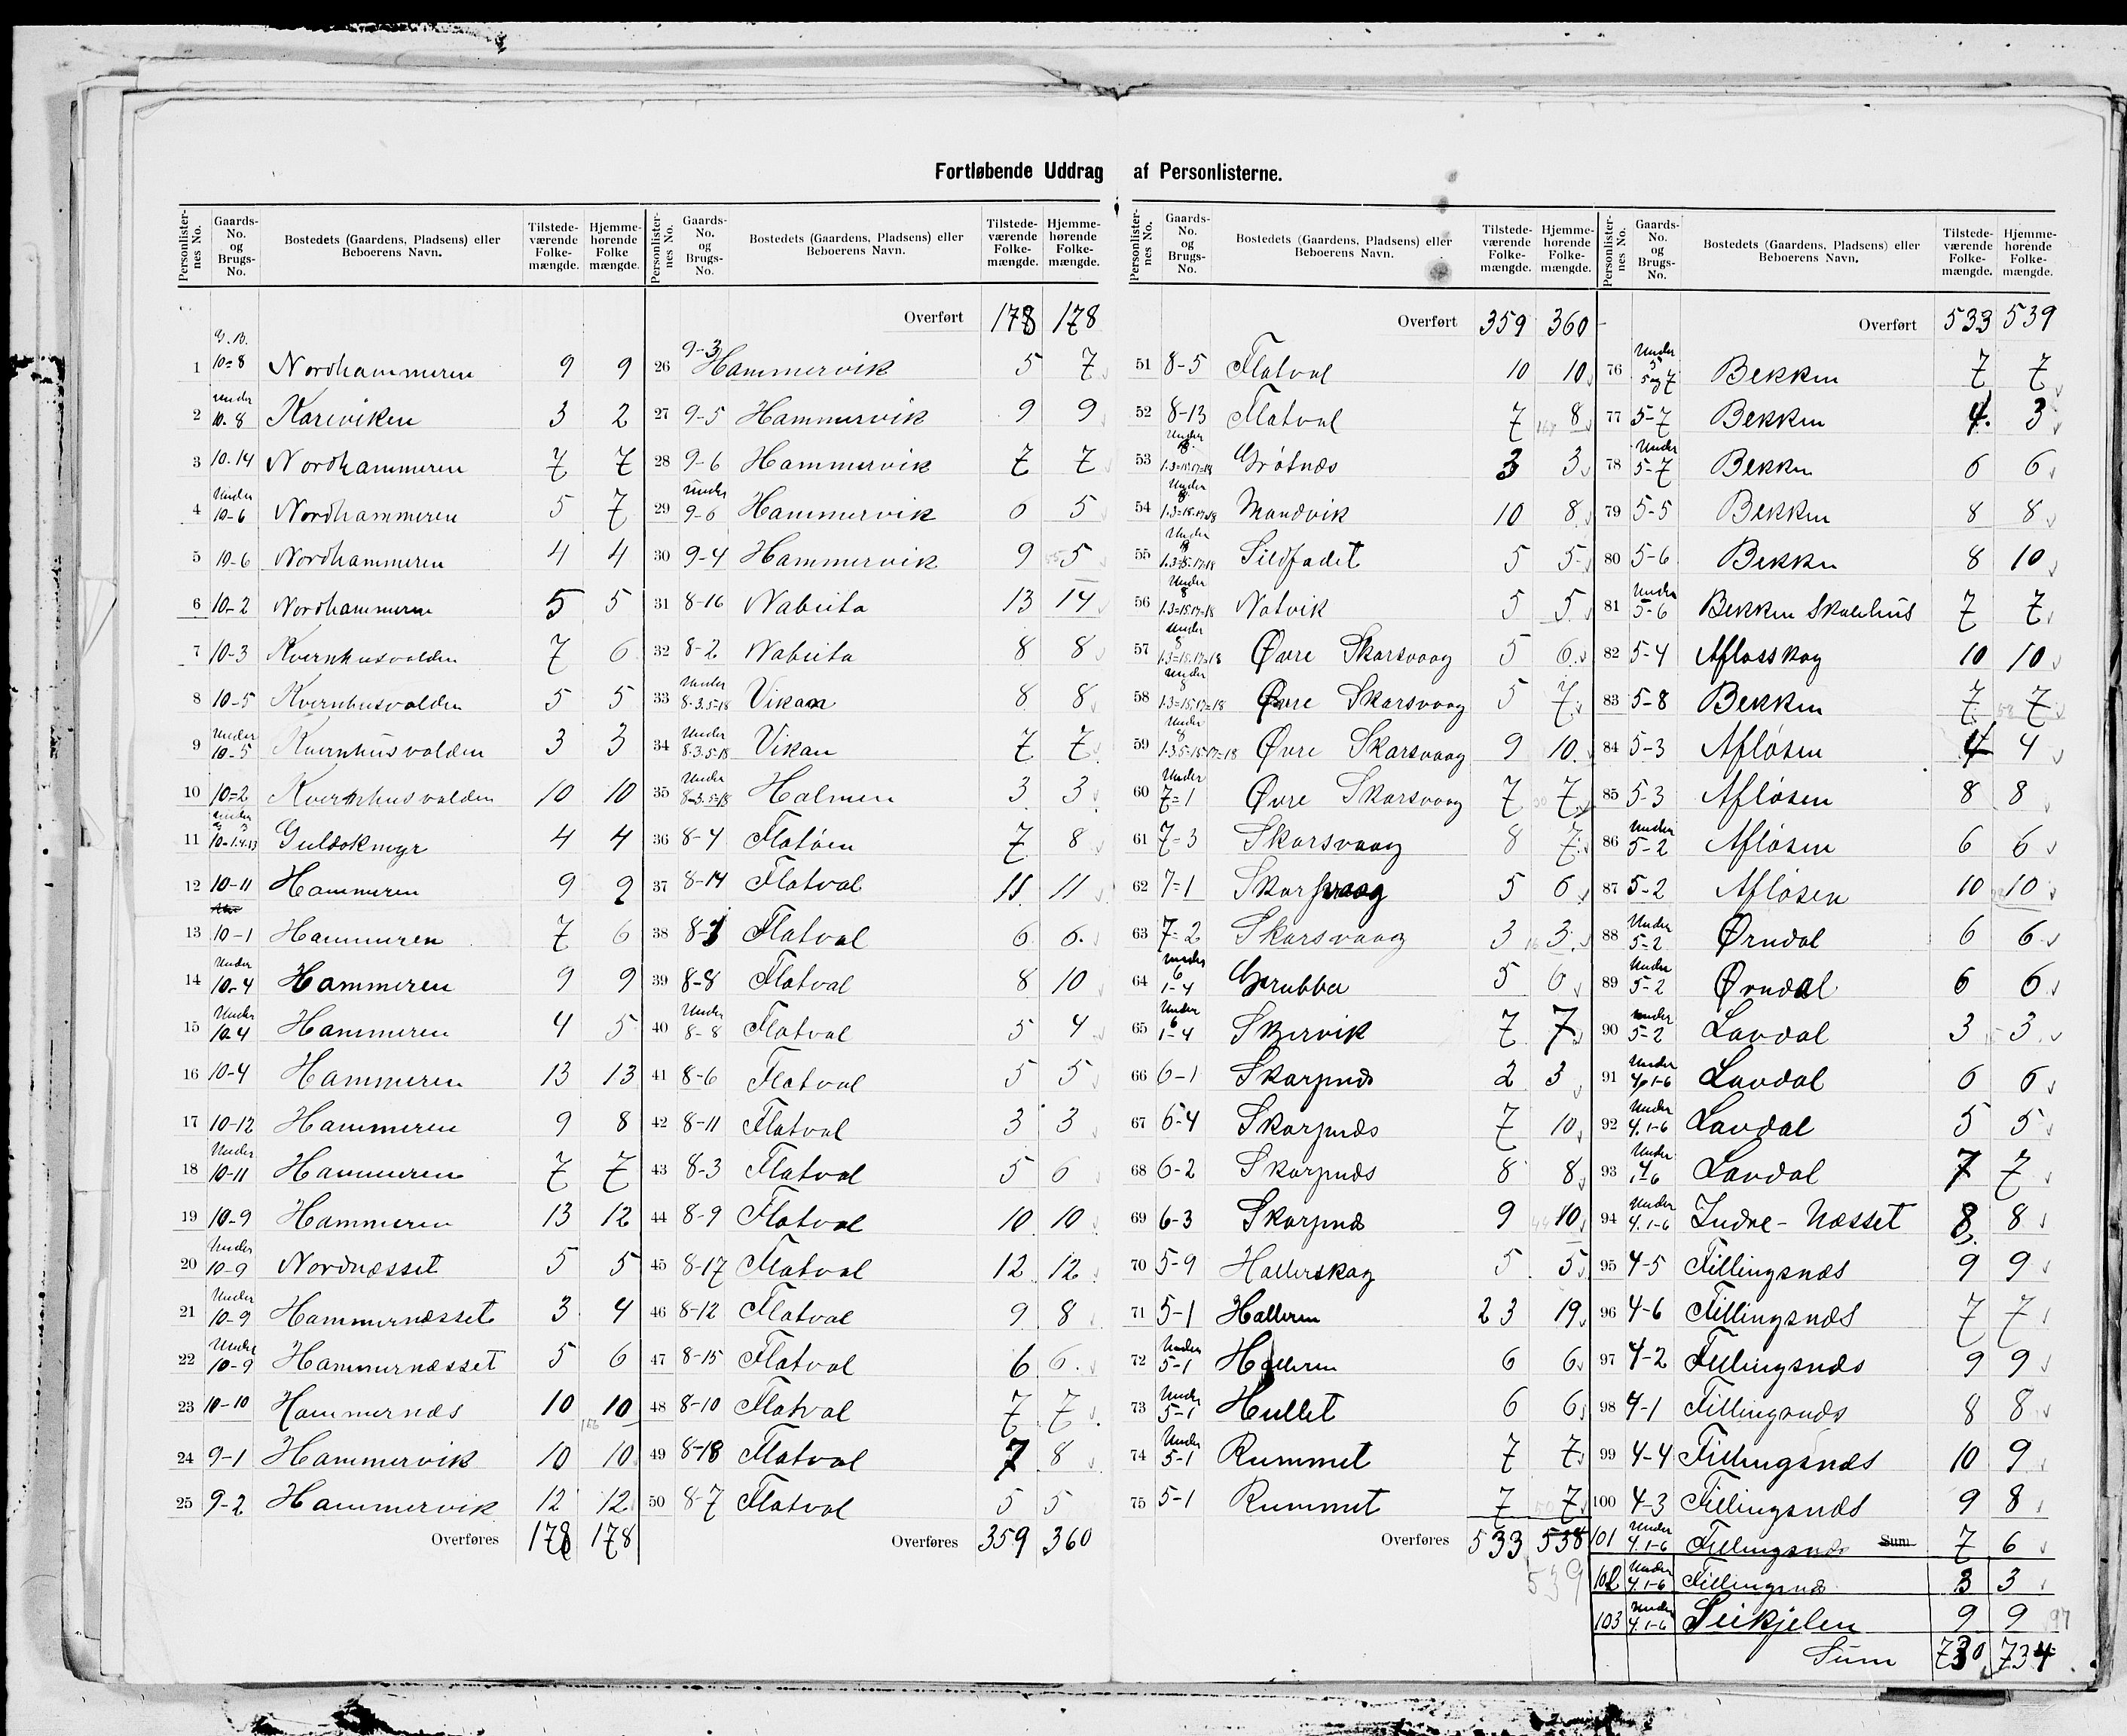 Fortløbende Uddrag af Personlisterne.
Personlister-nes No. Gaards-No. og Brugs-No. Bostedets (Gaardens, Pladsens) eller Beboerens Navn. Tilstede-værende Folke-mængde. Hjemme-hørende Folke mængde.
G. B.
1 10=8 Nordhammeren 9 9
2 under 10-8 Kareviken 3 2
3 10-14 Nordhammeren 7 7
4 Under 10-6 Nordhammeren 5 7
5 10-6 Nordhammeren 4 4
6 10-2 Nordhammeren 5 5
7 10-3 Kvernhusvolden 7 6
8 10-5 Kvernhusvolden 5 5
9 Under 10-5 Kvernhusvolden 3 3
10 10=2 Kvernhusvolden 10 10
11 under 10-1.4.13 Guldoknyr 4 4
12 10-11 Hammeren 9 9
13 10-1 Hammeren 7 6
14 Under 10-4 Hammeren 9 9
15 Under 10-4 Hammeren 4 5
16 10-4 Hammeren 13 13
17 10-12 Hammeren 9 8
18 Under 10-11 Hammeren 7 7
19 10-9 Hammeren 13 12
20 Under 10-9 Nordnæsset 5 5
21 Under 10-9 Hammernæsset 3 4
22 Under 10-9 Hammernæsset 5 6
23 10-10 Hammernæs 10 10
24 9-1 Hammervik 10 10
25 9-2 Hammervik 12 12
Overføres 178 178
Personlister-nes No. Gaards-No. og Brugs-No. Bostedets (Gaardens, Pladsens) eller Beboerens Navn. Tilstede-værende Folke-mængde. Hjemme-hørende Folke-mængde.
Overført 178 178
26 9-3 Hammervik 5 7
27 9-5 Hammervik 9 9
28 9-6 Hammervik 7 7
29 under 9-6 Hammervik 6 5
30 9-4 Hammervik 9 5
31 8-16 Nabeita 13 14
32 8-2 Nabeita 8 8
33 Under 8.3.5=18 Vikan 8 8
34 Under 8.3.5-18 Vikan 7 7
35 Under 8-3.5=18 Holmen 3 3
36 8-4 Flatøen 7 8
37 8-14 Flatval 11 11
38 8-1 Flatval 6 6
39 8-8 Flatval 8 10
40 Under 8-8 Flatval 5 4
41 8-6 Flatval 5 5
42 8-11 Flatval 3 3
43 8-3 Flatval 5 6
44 8-9 Flatval 10 10
45 8-17 Flatval 12 12
46 8-12 Flatval 9 8
47 8-15 Flatval 6 6
48 8-10 Flatval 7 7
49 8-18 Flatval 7 8
50 8-7 Flatval 5 5
Overføres 359 360
Personlister-nes No. Gaards-No. og Brugs-No. Bostedets (Gaardens, Pladsens) eller Beboerens Navn. Tilstede-værende Folke-mængde. Hjemme-hørende Folke-mængde.
Overført 359 360
51 8-5 Flatval 10 10
52 8-13 Flatval 7 8
53 Under 8 1.3=15.17=18 Grøtnæs 3 3
54 Under 8 1.3=15.17=18 Mandvik 10 8
55 Under 8 1.3=15.17=18 Sildfadet 5 5
56 Under 8 1.3=15.17=18 Notvik 5 5
57 Under 8 1.3=15.17=18 Øvre Skarsvaag 5 6
58 Under 8 1.3=15.17=18 Øvre Skarsvaag 5 7
59 Under 8 1.3.5-15.17=18 Øvre Skarsvaag 9 10
60 Under 7=1 Øvre Skarsvaag 7 7
61 7=3 Skarsvaag 8 7
62 7=1 Skarsvaag 5 6
63 7=2 Skarsvaag 3 3
64 under 6 1-4 Grubba 5 6
65 Under 6 1-4 Skervik 7 7
66 6-1 Skarpnæs 2 3
67 6-4 Skarpnæs 7 10
68 6-2 Skarpnæs 8 8
69 6-3 Skarpnæs 9 10
70 5-9 Hallerskag 5 5
71 5-1 Halleren 23 19
72 Under 5-1 Halleren 6 6
73 Under 5-1 Hullet 6 6
74 Under 5-1 Rummet 7 7
75 5-1 Rummet 7 7
Overføres 533 538
539
Personlister-nes No. Gaards-No. og Brugs-No. Bostedets (Gaardens, Pladsens) eller Beboerens Navn. Tilstede-værende Folke-mængde. Hjemme-hørende Folke-mængde.
Overført 533 539
76 Under 5 5 og 7 Bekken 7 7
77 5-7 Bekken 4 3
78 Under 5-7 Bekken 6 6
79 5-5 Bekken 8 8
80 5-6 Bekken 8 10
81 Under 5-6 Bekken Skolehus 7 7
82 5-4 Afløsskag 10 10
83 5-8 Bekken 7 7
84 5-3 Afløsen 4 4
85 5-3 Afløsen 8 8
86 Under 5-2 Afløsen 6 6
87 5-2 Afløsen 10 10
88 Under 5-2 Ørndal 6 6
89 Under 5-2 Ørndal 6 6
90 under 5-2 Lavdal 3 3
91 Under 4, 1-6 Lavdal 6 6
92 Under 4. 1-6 Lavdal 5 5
93 Under 4 1-6 Lavdal 7 7
94 Under 4. 1-6 Indre-Næsset 8 8
95 4-5 Fillingsnæs 9 9
96 4-6 Fillingsnæs 7 7
97 4-2 Fillingsnæs 9 9
98 4-1 Fillingsnæs 8 8
99 4-4 Fillingsnæs 10 9
100 4-3 Fillingsnæs 9 8
101 Under 4. 1-6 Fillingsnæs Sum 7 6
102 Under 4. 1-6 Fillingsnæs 3 3
103 Under 4. 1-6 Seikjelen 9 9 97
Sum 730 734